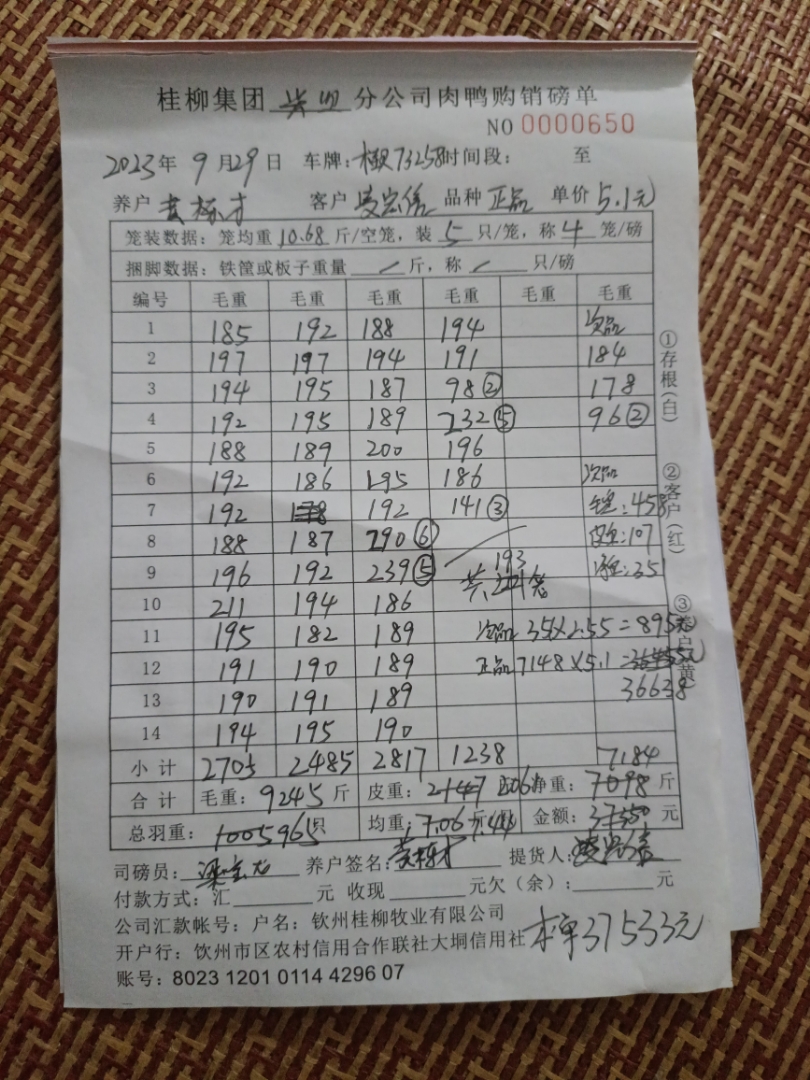 桂柳集团 分公司肉鸭购销磅单
NO 0000650
2023年 9月29日 车牌: 73258 时间段: 至
养户 客户 品种 正品 单价 5.1元
笼装数据: 笼均重 10.68 斤/空笼, 装 5 只/笼, 称 4 笼/磅
捆脚数据: 铁筐或板子重量 / 斤, 称 / 只/磅
编号 毛重 毛重 毛重 毛重 毛重 毛重
1 185 192 188 194 次品
2 197 197 194 191 184
3 194 195 187 98② 178
4 192 195 189 232⑤ 96②
5 188 189 200 196
6 192 186 195 186 次品
7 192 178 192 141③ 毛重:458
8 188 187 290⑥ 皮重:107
9 196 192 239⑤ 193 净重:351
共 笼
10 211 194 186
11 195 182 189 次品 351×2.55=895元
12 191 190 189 正品 7148×5.1=
13 190 191 189 36638
14 194 195 190
小计 2705 2485 2817 1238 7184
合计 毛重: 9245 斤 皮重: 净重: 7098 斤
总羽重: 只 均重: 金额: 元
司磅员: 养户签名: 提货人:
付款方式: 汇 元 收现 元欠(余): 元
公司汇款帐号: 户名: 钦州桂柳牧业有限公司
开户行: 钦州市区农村信用合作联社大垌信用社 本单37533元
账号: 8023 1201 0114 4296 07
①存根(白)
②客户(红)
③养户(黄)